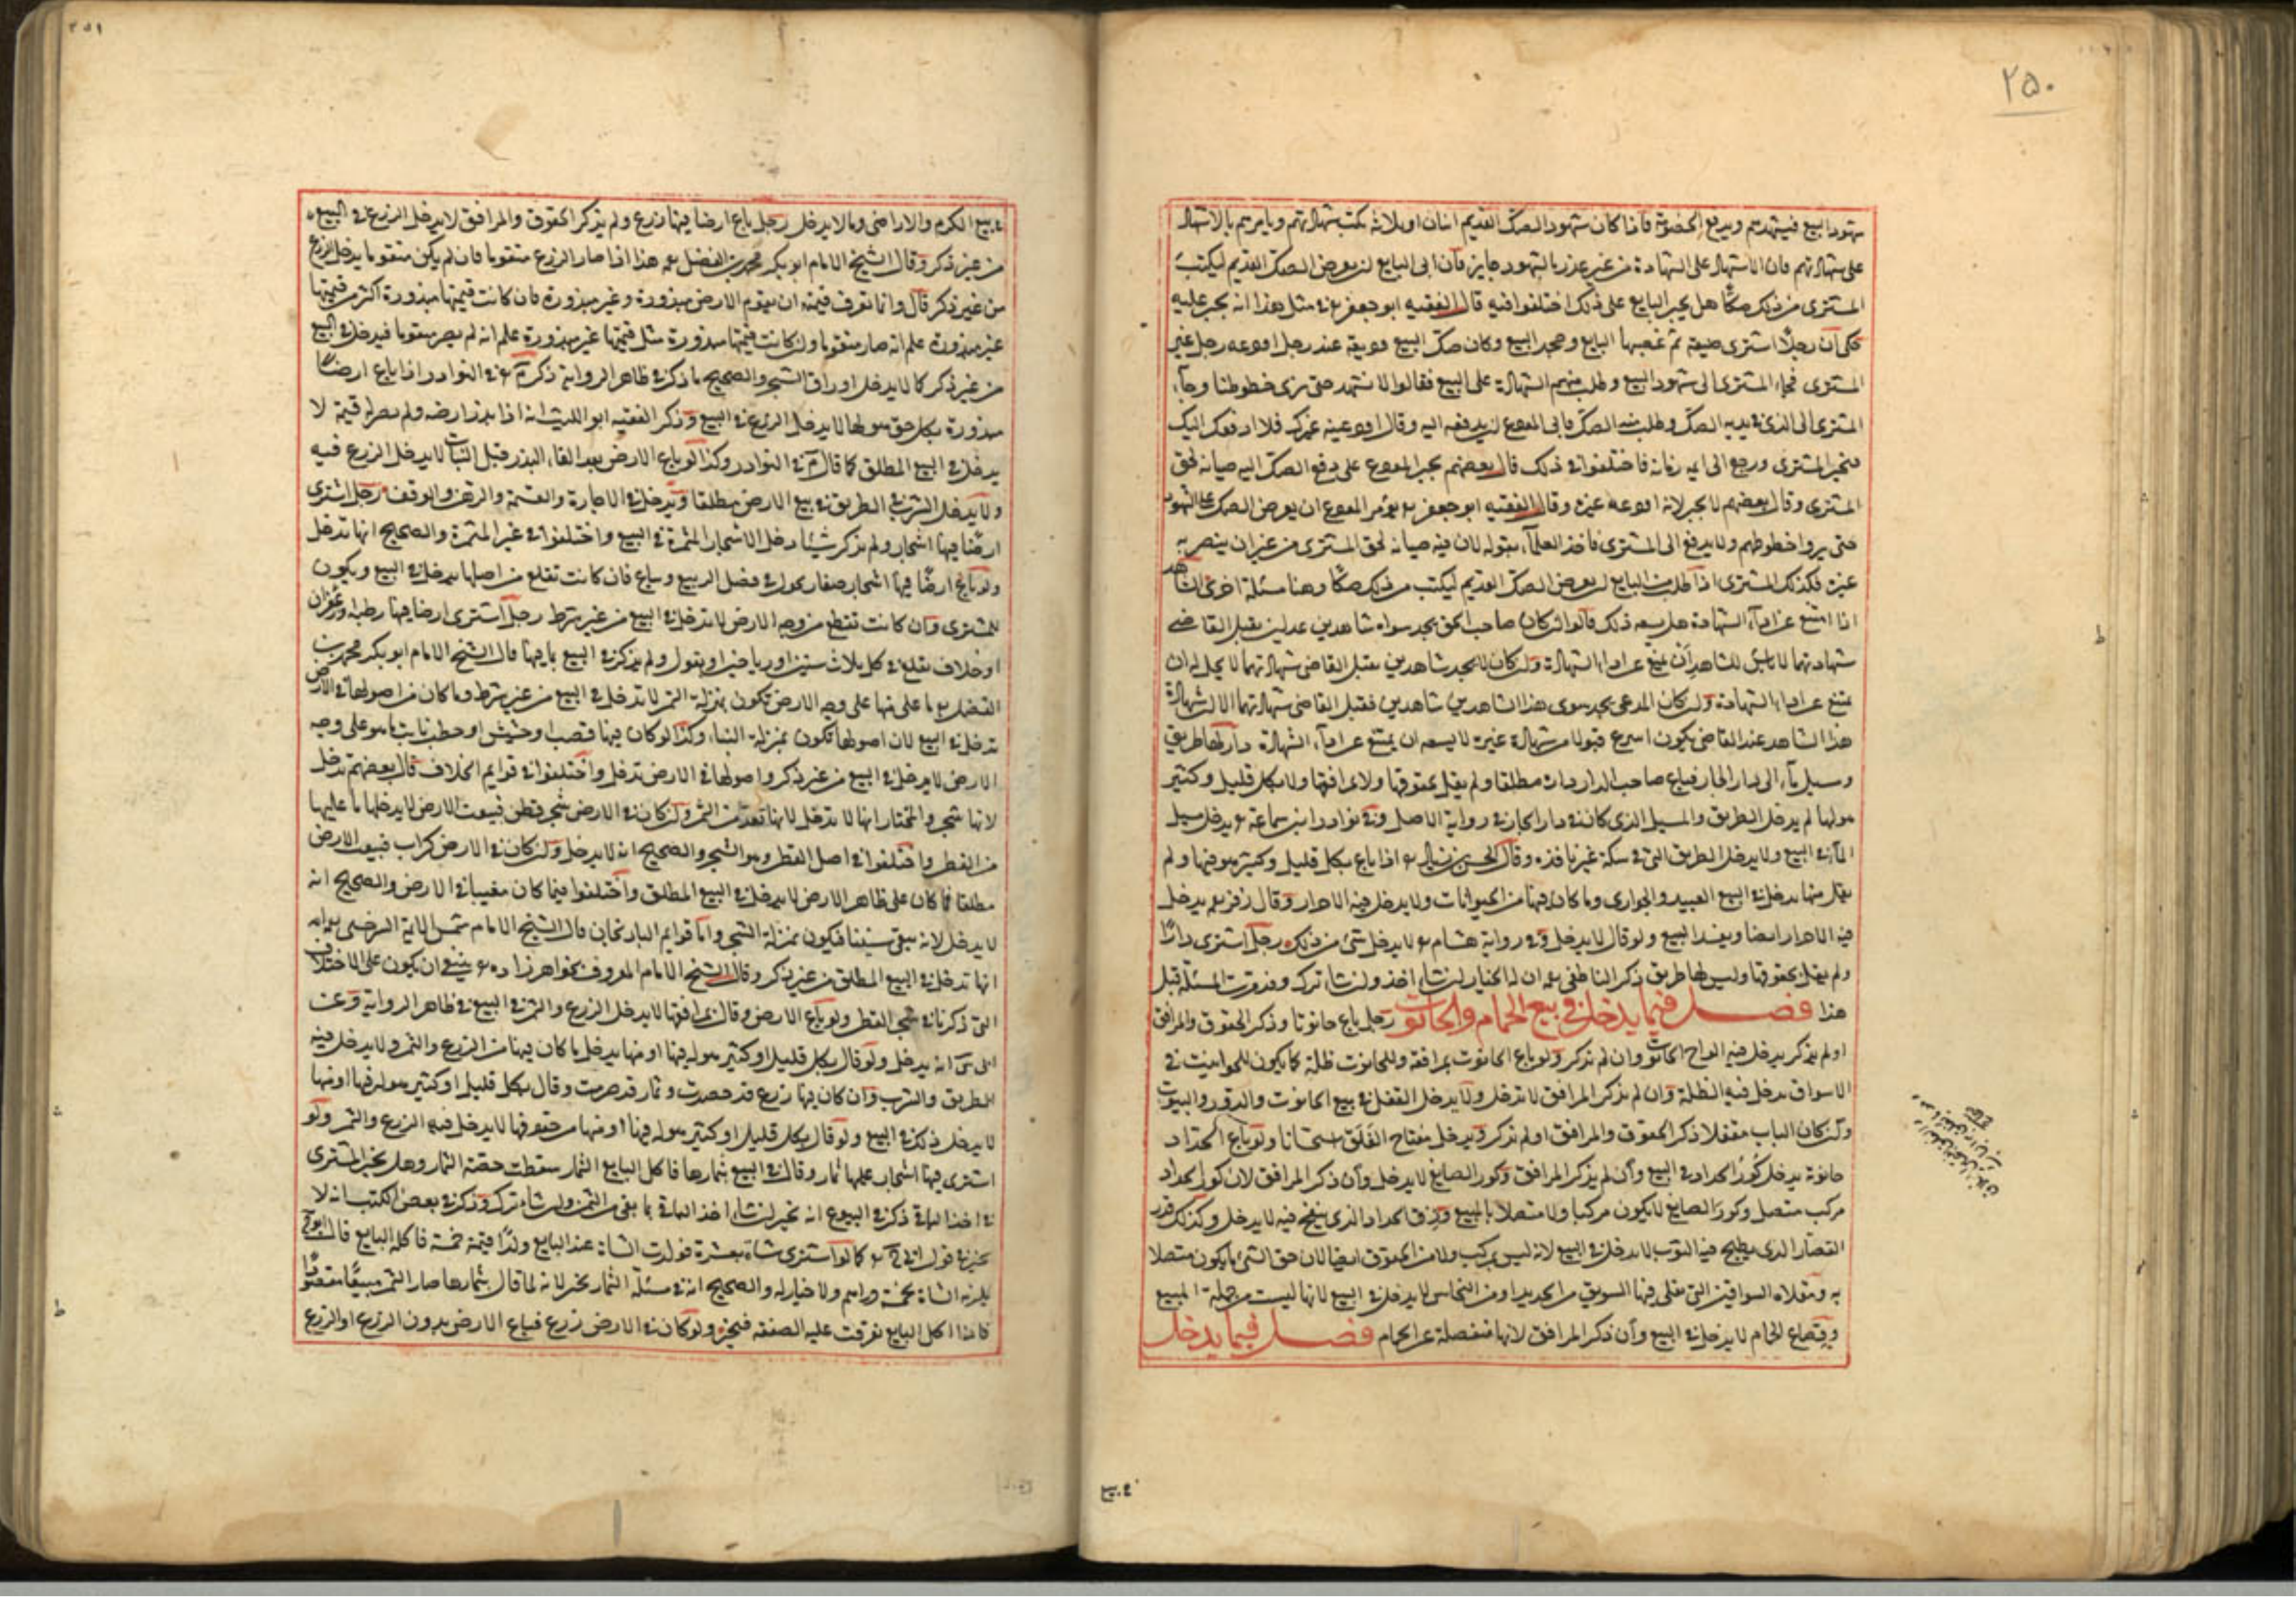 ٢٥٠
شهود البيع فيشهدهم ويدفع الخصومة فاذا كان شهود الصك القديم اثنان او ثلاثة يكتب شهادتهم ويامرهم بالاشهاد
على شهادتهم فان الاشهاد على الشهادة من غير عذر بالشهود جايز فان ابى البايع ان يعرض الصك القديم ليكتب
المشترى من ذلك صكًا هل يجبر البايع على ذلك اختلفوا فيه قال الفقيه ابو جعفر في مثل هذا انه يجبر عليه
حكى ان رجلًا اشترى ضيعة ثم غصبها البايع وجحد البيع وكان صك البيع وديعة عند رجل اودعه رجل غير
المشترى فجاء المشترى الى شهود البيع وطلب منهم الشهادة على البيع فقالوا لا نشهد حتى نرى خطوطنا وجاء
المشترى الى الذى في يديه الصك وطلب منه الصك فابى المودع ان يدفعه اليه وقال اودعنيه غيرك فلا ادفعه اليك
فتحير المشترى ورجع الى ائمة زمانه فاختلفوا في ذلك قال بعضهم يجبر المودع على دفع الصك اليه صيانة لحق
المشترى وقال بعضهم لا يجبر لانه اودعه غيره وقال الفقيه ابو جعفر يؤمر المودع ان يعرض الصك على الشهود
حتى يروا خطوطهم ولا يدفع الى المشترى فاخذ العلماء بقوله لان فيه صيانة لحق المشترى من غير ان يتضرر به
غيره فكذلك المشترى اذا طلب من البايع ان يعرض الصك القديم ليكتب من ذلك صكًا وهنا مسئلة اخرى الشاهد
اذا امتنع عن اداء الشهادة هل يسعه ذلك قالوا ان كان صاحب الحق يجد سواه شاهدين عدلين يقبل القاضى
شهادتهما لا باس للشاهد ان يمتنع عن اداء الشهادة وان كان لا يجد شاهدين يقبل القاضى شهادتهما لا يحل له ان
يمتنع عن اداء الشهادة وان كان المدعى يجد سوى هذا الشاهدين شاهدين فقبل القاضى شهادتهما الا ان شهادة
هذا الشاهد عند القاضى يكون اسرع قبولا من شهادة غيره لا يسعه ان يمتنع عن اداء الشهادة دار لها طريق
وسبيل ماء الى دار الجار فباع صاحب الدار داره مطلقا ولم يقل بحقوقها ولا بمرافقها ولا بكل قليل وكثير
هو لها لم يدخل الطريق والمسيل الذى كان في دار الجار في رواية الاصل وفي نوادر ابن سماعة يدخل مسيل
الماء في البيع ولا يدخل الطريق التى في سكة غير نافذه وقال الحسن بن زياد اذا باع بكل قليل وكثير هو فيها ولم
يقل منها يدخل في البيع العبيد والجوارى وما كان فيها من الحيوانات ولا يدخل فيه الاحرار وقال زفر يدخل
فيه الاحرار ايضا ويفسد البيع ولو قال لا يدخل وفي رواية هشام لا يدخل شئ من ذلك رجل اشترى دارًا
ولم يقل بحقوقها وليس لها طريق ذكر الناطفى ان له الخيار ان شاء اخذ وان شاء ترك وقد مرت المسئلة قبل
هذا فصل فيما يدخل في بيع الحمام والحانوت رجل باع حانوتا وذكر الحقوق والمرافق
او لم يذكر يدخل فيه الواح الحانوت وان لم يذكر ولو باع الحانوت بمرافقه وللحانوت ظلة كما يكون للحوانيت في
الاسواق يدخل فيه الظلة وان لم يذكر المرافق لا تدخل ولا يدخل القفل في بيع الحانوت والدور والبيوت
وان كان الباب مقفلا ذكر الحقوق والمرافق او لم يذكر ويدخل مفتاح الغلق استحسانا ولو باع الحداد
حانوته يدخل كور الحداد في البيع وان لم يذكر المرافق وكور الصايغ لا يدخل وان ذكر المرافق لان كور الحداد
مركب متصل وكور الصايغ لا يكون مركبا ولا متصلا بالمبيع وزق الحداد الذى ينفخ فيه لا يدخل وكذلك قدر
القصار الذى يطبخ فيه الثوب لا يدخل في البيع لانه ليس بمركب ولا من الحقوق ايضا لان حق الشئ ما يكون متصلا
به ومقلاه السواقين التى يقلى فيها السويق من الحديد او من النحاس لا يدخل في البيع لانها ليست من جملة المبيع
وقصاع الحمام لا يدخل في البيع وان ذكر المرافق لانها منفصلة عن الحمام فصل فيما يدخل
في بيع
٢٥١
في بيع الكرم والاراضى وما لا يدخل رجل باع ارضا فيها زرع ولم يذكر الحقوق والمرافق لا يدخل الزرع في البيع
من غير ذكر وقال الشيخ الامام ابو بكر محمد بن الفضل هذا اذا صار الزرع متقوما فان لم يكن متقوما يدخل الزرع
من غير ذكر قال وانما تعرف قيمته ان يقوم الارض مبذورة وغير مبذورة فان كانت قيمتها مبذورة اكثر من قيمتها
غير مبذورة علم انه صار متقوما وان كانت قيمتها مبذورة مثل قيمتها غير مبذورة علم انه لم يصر متقوما فيدخل في البيع
من غير ذكر كما لا يدخل اوراق الشجر والصحيح ما ذكر في ظاهر الرواية ذكر في النوادر اذا باع ارضًا
مبذورة بكل حق هو لها لا يدخل الزرع في البيع وذكر الفقيه ابو الليث انه اذا بذر ارضه ولم يصر له قيمة لا
يدخل في البيع المطلق كما قال في النوادر وكذا لو باع الارض بعد القاء البذر قبل النبات لا يدخل الزرع فيه
ولا يدخل الشرب والطريق في بيع الارض مطلقا ويدخل في الاجارة والقسمة والرهن والوقف رجل اشترى
ارضًا فيها اشجار ولم يذكر شيئا دخل الاشجار المثمرة في البيع واختلفوا في غير المثمرة والصحيح انها تدخل
ولو باع ارضًا فيها اشجار صغار يحول في فصل الربيع وتباع فان كانت تقلع من اصلها يدخل في البيع ويكون
للمشترى وان كانت تقطع من وجه الارض لا تدخل في البيع من غير شرط رجل اشترى ارضا فيها رطبة او زعفران
او خلاف يقلع في كل ثلاث سنين او رياحين او بقول ولم يذكر في البيع ما فيها قال الشيخ الامام ابو بكر محمد بن
الفضل ما على منها على وجه الارض يكون بمنزلة الثمر لا تدخل في البيع من غير شرط وما كان من اصولها في الارض
تدخل في البيع لان اصولها تكون بمنزلة البناء وكذا لو كان فيها قصب او حشيش او حطب نابت ما هو على وجه
الارض لا يدخل في البيع من غير ذكر واصولها في الارض تدخل واختلفوا في قوايم الخلاف قال بعضهم تدخل
لانها شجر والمختار انها لا تدخل لانها تعد من الثمر وان كان في الارض شجر قطن فبيعت الارض لا يدخلها ما عليها
من القطن واختلفوا في اصل القطن وهو الشجر والصحيح انه لا يدخل وان كان في الارض كراث فبيعت الارض
مطلقا فما كان على ظاهر الارض لا يدخل في البيع المطلق واختلفوا فيما كان مغيبا في الارض والصحيح انه
لا يدخل لانه يبقى سنينا فيكون بمنزلة الشجر واما قوايم الباذنجان قال الشيخ الامام شمس الائمة السرخسى
انها تدخل في البيع المطلق من غير ذكر وقال الشيخ الامام المعروف بخواهر زاده ينبغى ان يكون على الاختلاف
التى ذكرنا في شجر القطن ولو باع الارض وقال بمرافقها لا يدخل الزرع والثمر في البيع في ظاهر الرواية وعن
انه يدخل ولو قال بكل قليل او كثير هو له فيها او منها يدخل ما كان فيها من الزرع والثمر ولا يدخل فيه
الطريق والشرب وان كان فيها زرع قد حصدت وثمار قد صرمت وقال بكل قليل او كثير هو له فيها او منها
لا يدخل ذلك في البيع ولو قال بكل قليل او كثير هو له فيها او منها من حقوقها لا يدخل فيه الزرع والثمر ولو
اشترى فيها اشجار عليها ثمار وقال في البيع بثمارها فاكل البايع الثمار سقطت حصة الثمار وهل يخير المشترى
في اخذ الباقى ذكر في البيوع انه يخير ان شاء اخذ الباقى بما بقى من الثمن وان شاء ترك وذكر في بعض الكتب انه لا
يخير في قول كما لو اشترى شاة بعشرة فولدت الشاة عند البايع ولدًا قيمته خمسة فاكله البايع قال
يلزمه الشاة بخمسة دراهم ولا خيار له والصحيح انه في مسئلة الثمار يخير لانه لما قال بثمارها صار الثمر مبيعًا مقصودًا
فاذا اكل البايع تفرقت عليه الصفقه فيخير ولو كان في الارض زرع فباع الارض بدون الزرع او الزرع